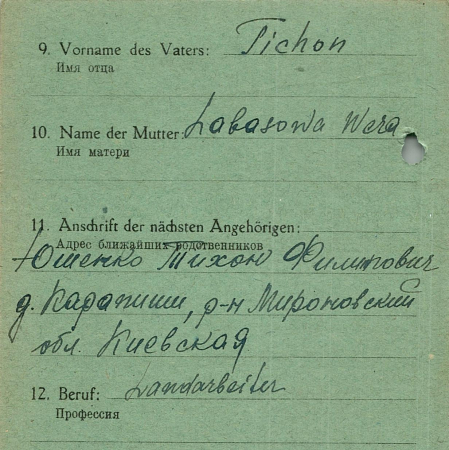 9. Vorname des Vaters: Tichon
Имя отца
10. Name der Mutter: Labasowa Wera
Имя матери
11. Anschrift der nächsten Angehörigen:
Адрес ближайших родственников
Юшенко Тихон Филипович
д. Карапиши, р-н Мироновский
обл. Киевская
12. Beruf: Landarbeiter
Профессия